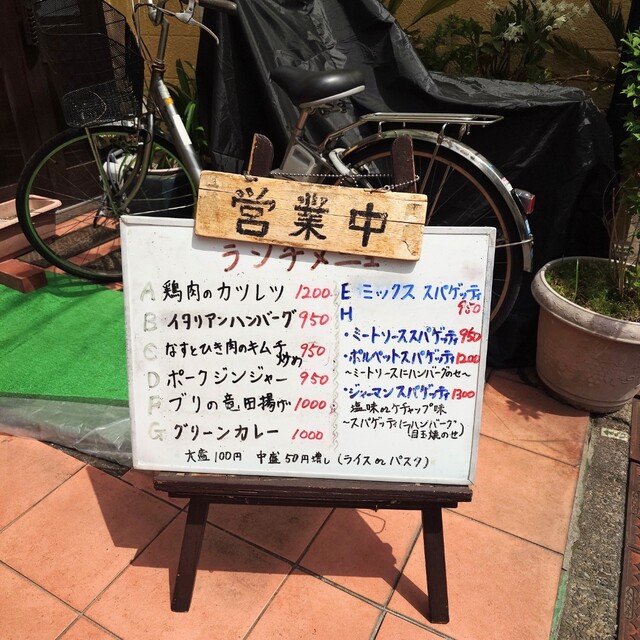 営業中
ランチメニュー
A 鶏肉のカツレツ 1200
B イタリアンハンバーグ 950
C なすとひき肉のキムチ炒め 950
D ポークジンジャー 950
F ブリの竜田揚げ 1000
G グリーンカレー 1000
E ミックススパゲッティ 950
H
・ミートソーススパゲッティ 950
・ポルペットスパゲッティ 1200
～ミートソースにハンバーグのせ～
・ジャーマンスパゲッティ 1300
塩味orケチャップ味
～スパゲッティにハンバーグ
目玉焼のせ
大盛100円 中盛50円増し(ライスorパスタ)